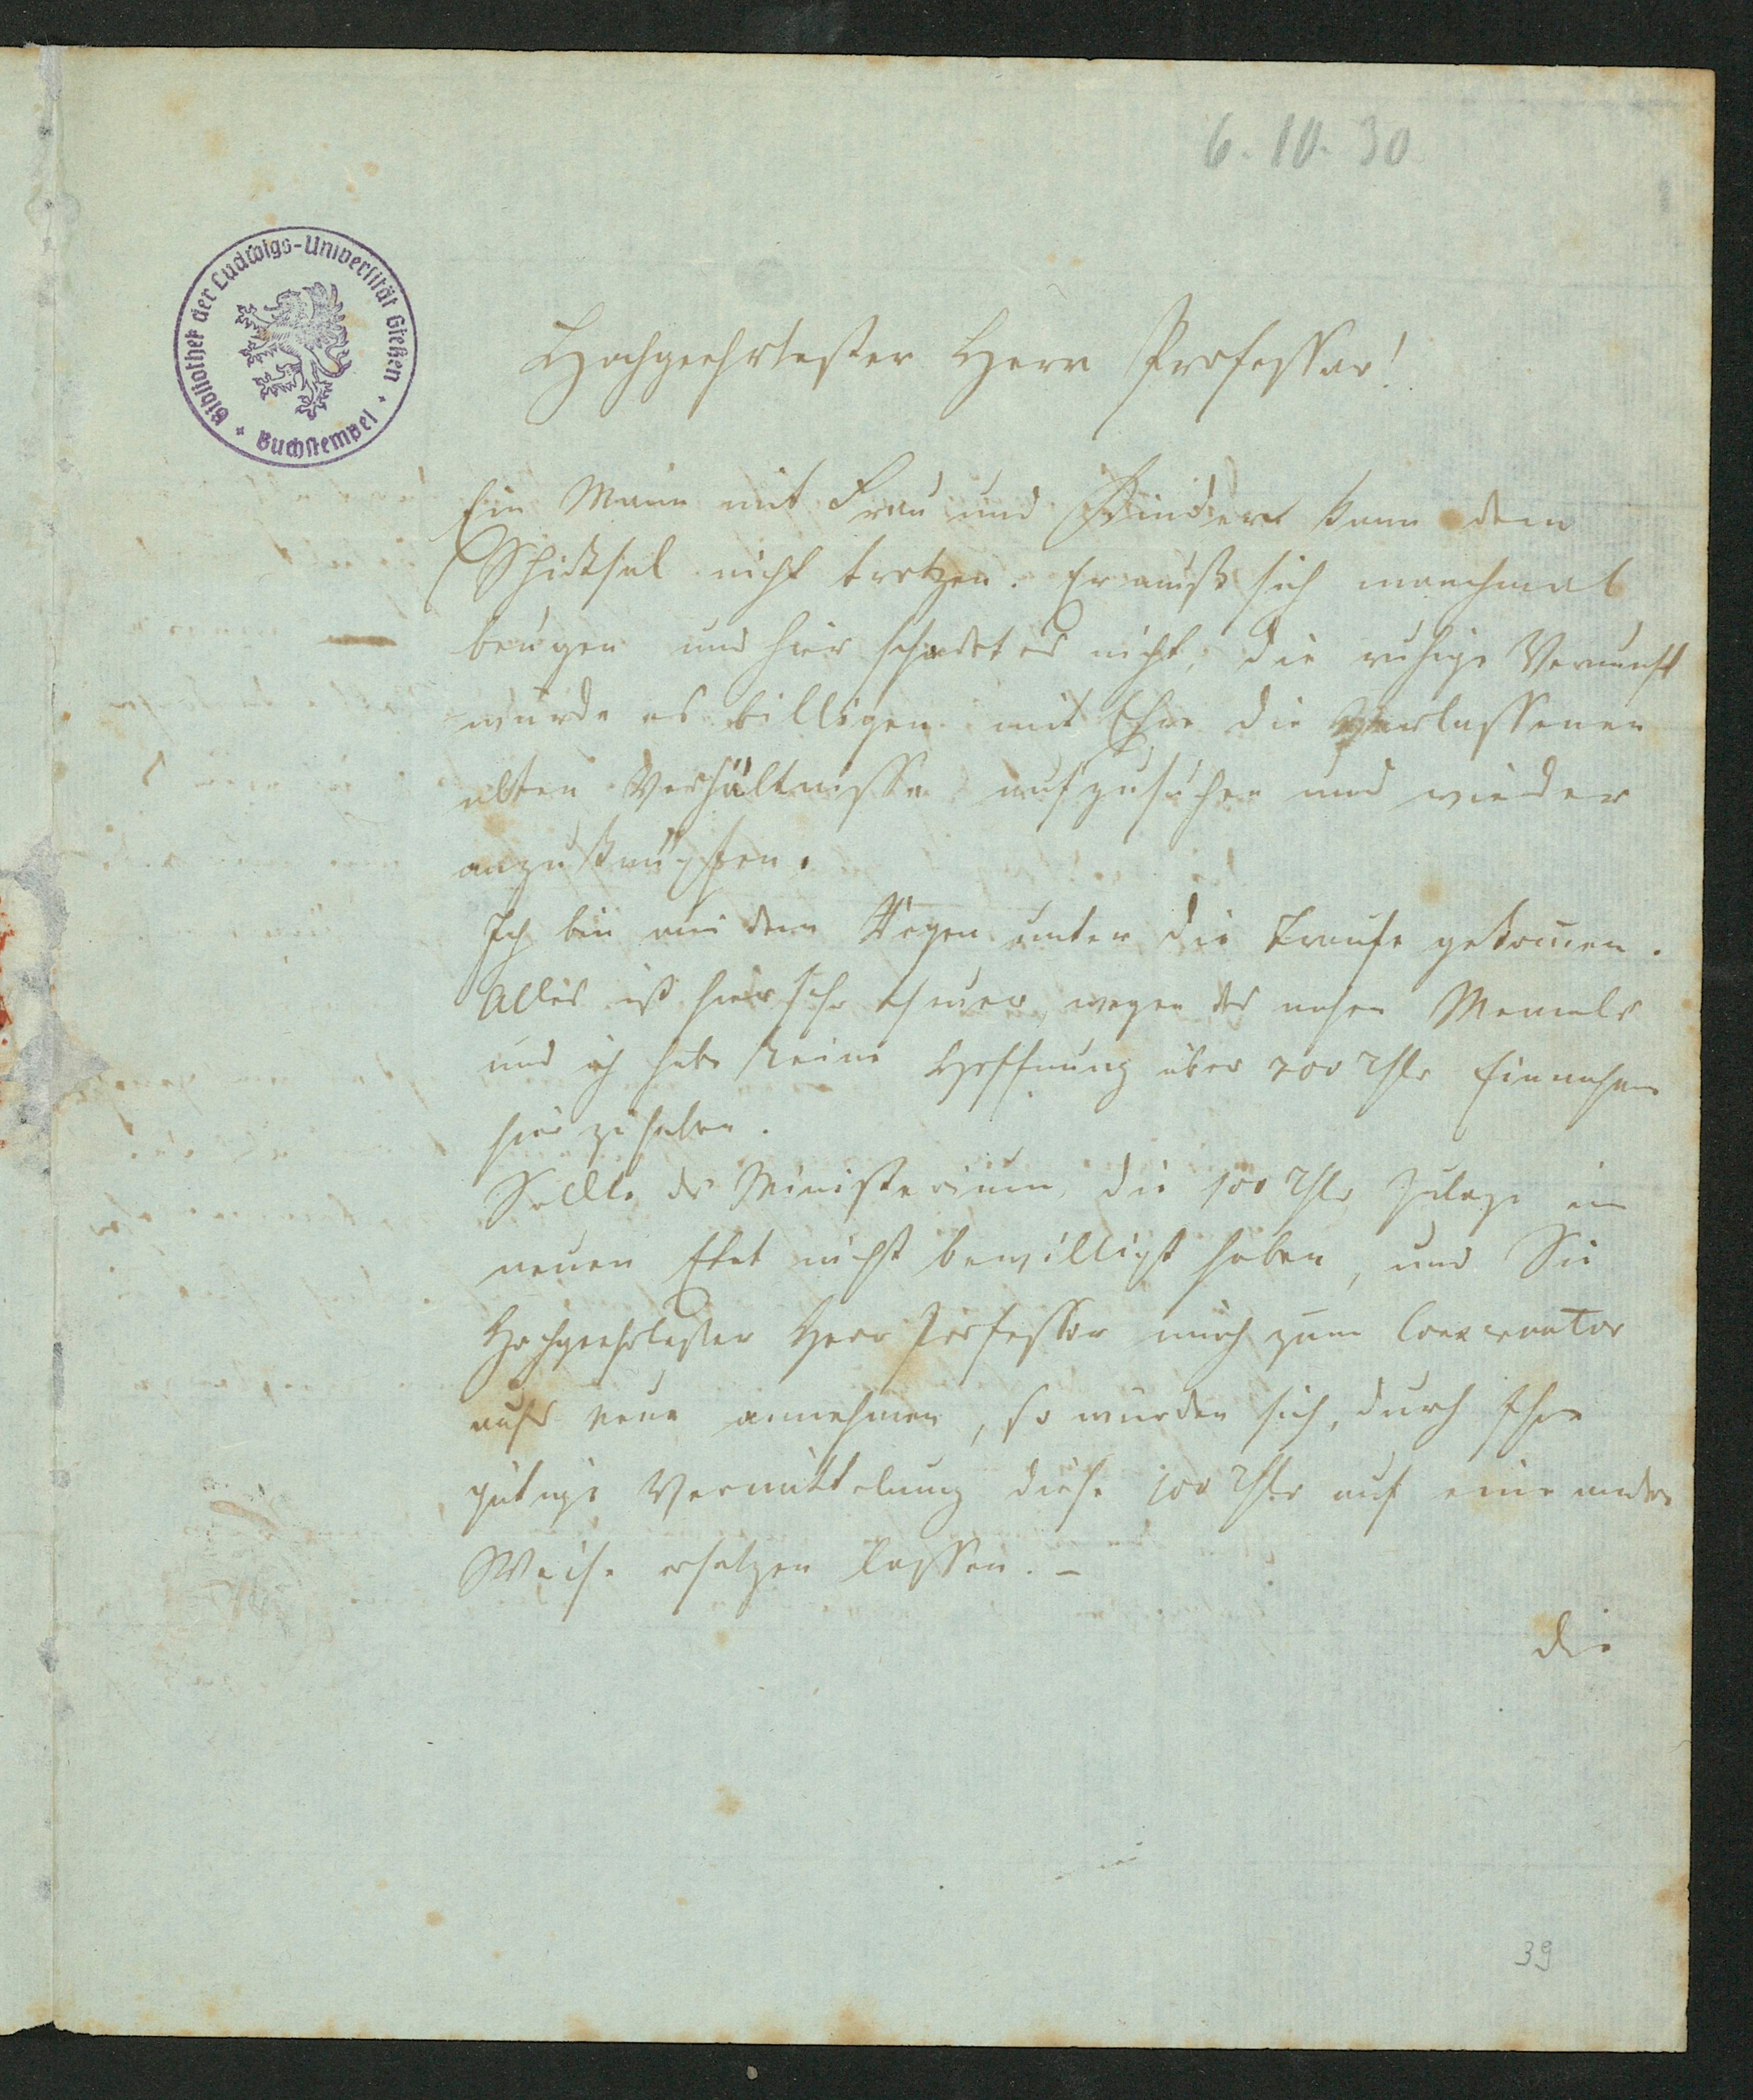 6. 10. 30
Bibliothek der Ludwigs-Universität Gießen
Buchstempel
Hochgeehrtester Herr Professor!
Ein Mann mit Frau und Kinder kann dem
Schicksal nicht trotzen. Er muß sich manchmal
beugen und hier schadet es nicht, die ruhige Vernunft
wurde es billigen mit Ehre die verlassenen
alten Verhältnisse aufzusuchen und wieder
anzuknüpfen.
Ich bin aus dem Regen unter die Traufe gekommen.
Alles ist hier sehr theuer, wegen des nahen Memels
und ich habe keine Hoffnung über 200 Thlr Einnahme
hier zu haben.
Sollte das Ministerium, die 100 Thlr Zulage im
neuen Etat nicht bewilligt haben, und Sie
Hochgeehrtester Herr Professor mich zum Conservator
aufs neue annehmen, so wurden sich, durch Ihre
gütige Vermittelung diese 100 Thlr auf eine andere
Weise ersetzen lassen. -
die
39